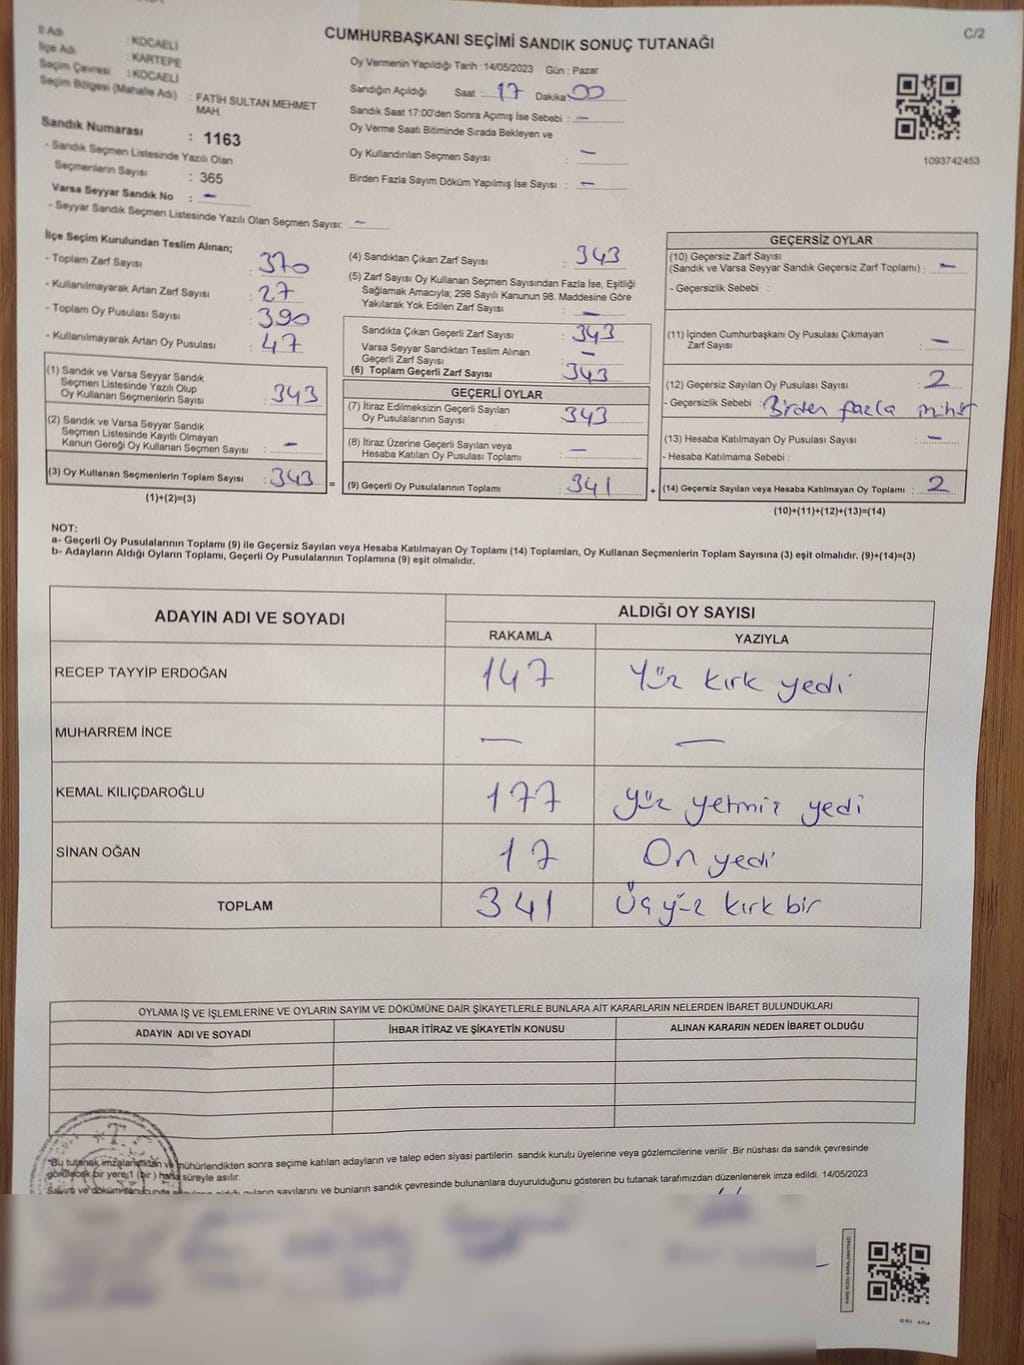 C/2
CUMHURBAŞKANI SEÇİMİ SANDIK SONUÇ TUTANAĞI
İl Adı : KOCAELİ
İlçe Adı : KARTEPE
Seçim Çevresi : KOCAELİ
Seçim Bölgesi (Mahalle Adı) : FATİH SULTAN MEHMET
MAH.
Sandık Numarası : 1163
- Sandık Seçmen Listesinde Yazılı Olan
Seçmenlerin Sayısı : 365
Varsa Seyyar Sandık No : –
- Seyyar Sandık Seçmen Listesinde Yazılı Olan Seçmen Sayısı: –
Oy Vermenin Yapıldığı Tarih : 14/05/2023 Gün : Pazar
Sandığın Açıldığı Saat : 17 Dakika 00
Sandık Saat 17:00'den Sonra Açımış İse Sebebi : –
Oy Verme Saati Bitiminde Sırada Bekleyen ve
Oy Kullandırılan Seçmen Sayısı : –
Birden Fazla Sayım Döküm Yapılmış İse Sayısı : –
1093742453
İlçe Seçim Kurulundan Teslim Alınan;
- Toplam Zarf Sayısı : 370
- Kullanılmayarak Artan Zarf Sayısı : 27
- Toplam Oy Pusulası Sayısı : 390
- Kullanılmayarak Artan Oy Pusulası : 47
(1) Sandık ve Varsa Seyyar Sandık
Seçmen Listesinde Yazılı Olup
Oy Kullanan Seçmenlerin Sayısı : 343
(2) Sandık ve Varsa Seyyar Sandık
Seçmen Listesinde Kayıtlı Olmayan
Kanun Gereği Oy Kullanan Seçmen Sayısı : –
(3) Oy Kullanan Seçmenlerin Toplam Sayısı : 343 =
(1)+(2)=(3)
(4) Sandıktan Çıkan Zarf Sayısı : 343
(5) Zarf Sayısı Oy Kullanan Seçmen Sayısından Fazla İse, Eşitliği
Sağlamak Amacıyla; 298 Sayılı Kanunun 98. Maddesine Göre
Yakılarak Yok Edilen Zarf Sayısı : –
Sandıkta Çıkan Geçerli Zarf Sayısı : 343
Varsa Seyyar Sandıktan Teslim Alınan
Geçerli Zarf Sayısı : –
(6) Toplam Geçerli Zarf Sayısı : 343
GEÇERLİ OYLAR
(7) İtiraz Edilmeksizin Geçerli Sayılan
Oy Pusulalarının Sayısı : 343
(8) İtiraz Üzerine Geçerli Sayılan veya
Hesaba Katılan Oy Pusulası Toplamı : –
(9) Geçerli Oy Pusulalarının Toplamı : 341 +
GEÇERSİZ OYLAR
(10) Geçersiz Zarf Sayısı
(Sandık ve Varsa Seyyar Sandık Geçersiz Zarf Toplamı) : –
- Geçersizlik Sebebi :
(11) İçinden Cumhurbaşkanı Oy Pusulası Çıkmayan
Zarf Sayısı : –
(12) Geçersiz Sayılan Oy Pusulası Sayısı : 2
- Geçersizlik Sebebi : Birden fazla
(13) Hesaba Katılmayan Oy Pusulası Sayısı : –
- Hesaba Katılmama Sebebi :
(14) Geçersiz Sayılan veya Hesaba Katılmayan Oy Toplamı : 2
(10)+(11)+(12)+(13)=(14)
NOT:
a- Geçerli Oy Pusulalarının Toplamı (9) ile Geçersiz Sayılan veya Hesaba Katılmayan Oy Toplamı (14) Toplamları, Oy Kullanan Seçmenlerin Toplam Sayısına (3) eşit olmalıdır. (9)+(14)=(3)
b- Adayların Aldığı Oyların Toplamı, Geçerli Oy Pusulalarının Toplamına (9) eşit olmalıdır.
ADAYIN ADI VE SOYADI ALDIĞI OY SAYISI
RAKAMLA YAZIYLA
RECEP TAYYİP ERDOĞAN 147 Yüz kırk yedi
MUHARREM İNCE – –
KEMAL KILIÇDAROĞLU 177 yüz yetmiş yedi
SİNAN OĞAN 17 On yedi
TOPLAM 341 Üç yüz kırk bir
OYLAMA İŞ VE İŞLEMLERİNE VE OYLARIN SAYIM VE DÖKÜMÜNE DAİR ŞİKAYETLERLE BUNLARA AİT KARARLARIN NELERDEN İBARET BULUNDUKLARI
ADAYIN ADI VE SOYADI İHBAR İTİRAZ VE ŞİKAYETİN KONUSU ALINAN KARARIN NEDEN İBARET OLDUĞU
*Bu tutanak imzalandıktan ve mühürlendikten sonra seçime katılan adayların ve talep eden siyasi partilerin sandık kurulu üyelerine veya gözlemcilerine verilir .Bir nüshası da sandık çevresinde
görülecek bir yere 1 (bir ) hafta süreyle asılır.
Sayım ve döküm sonucunda adayların aldığı oyların sayılarını ve bunların sandık çevresinde bulunanlara duyurulduğunu gösteren bu tutanak tarafımızdan düzenlenerek imza edildi. 14/05/2023